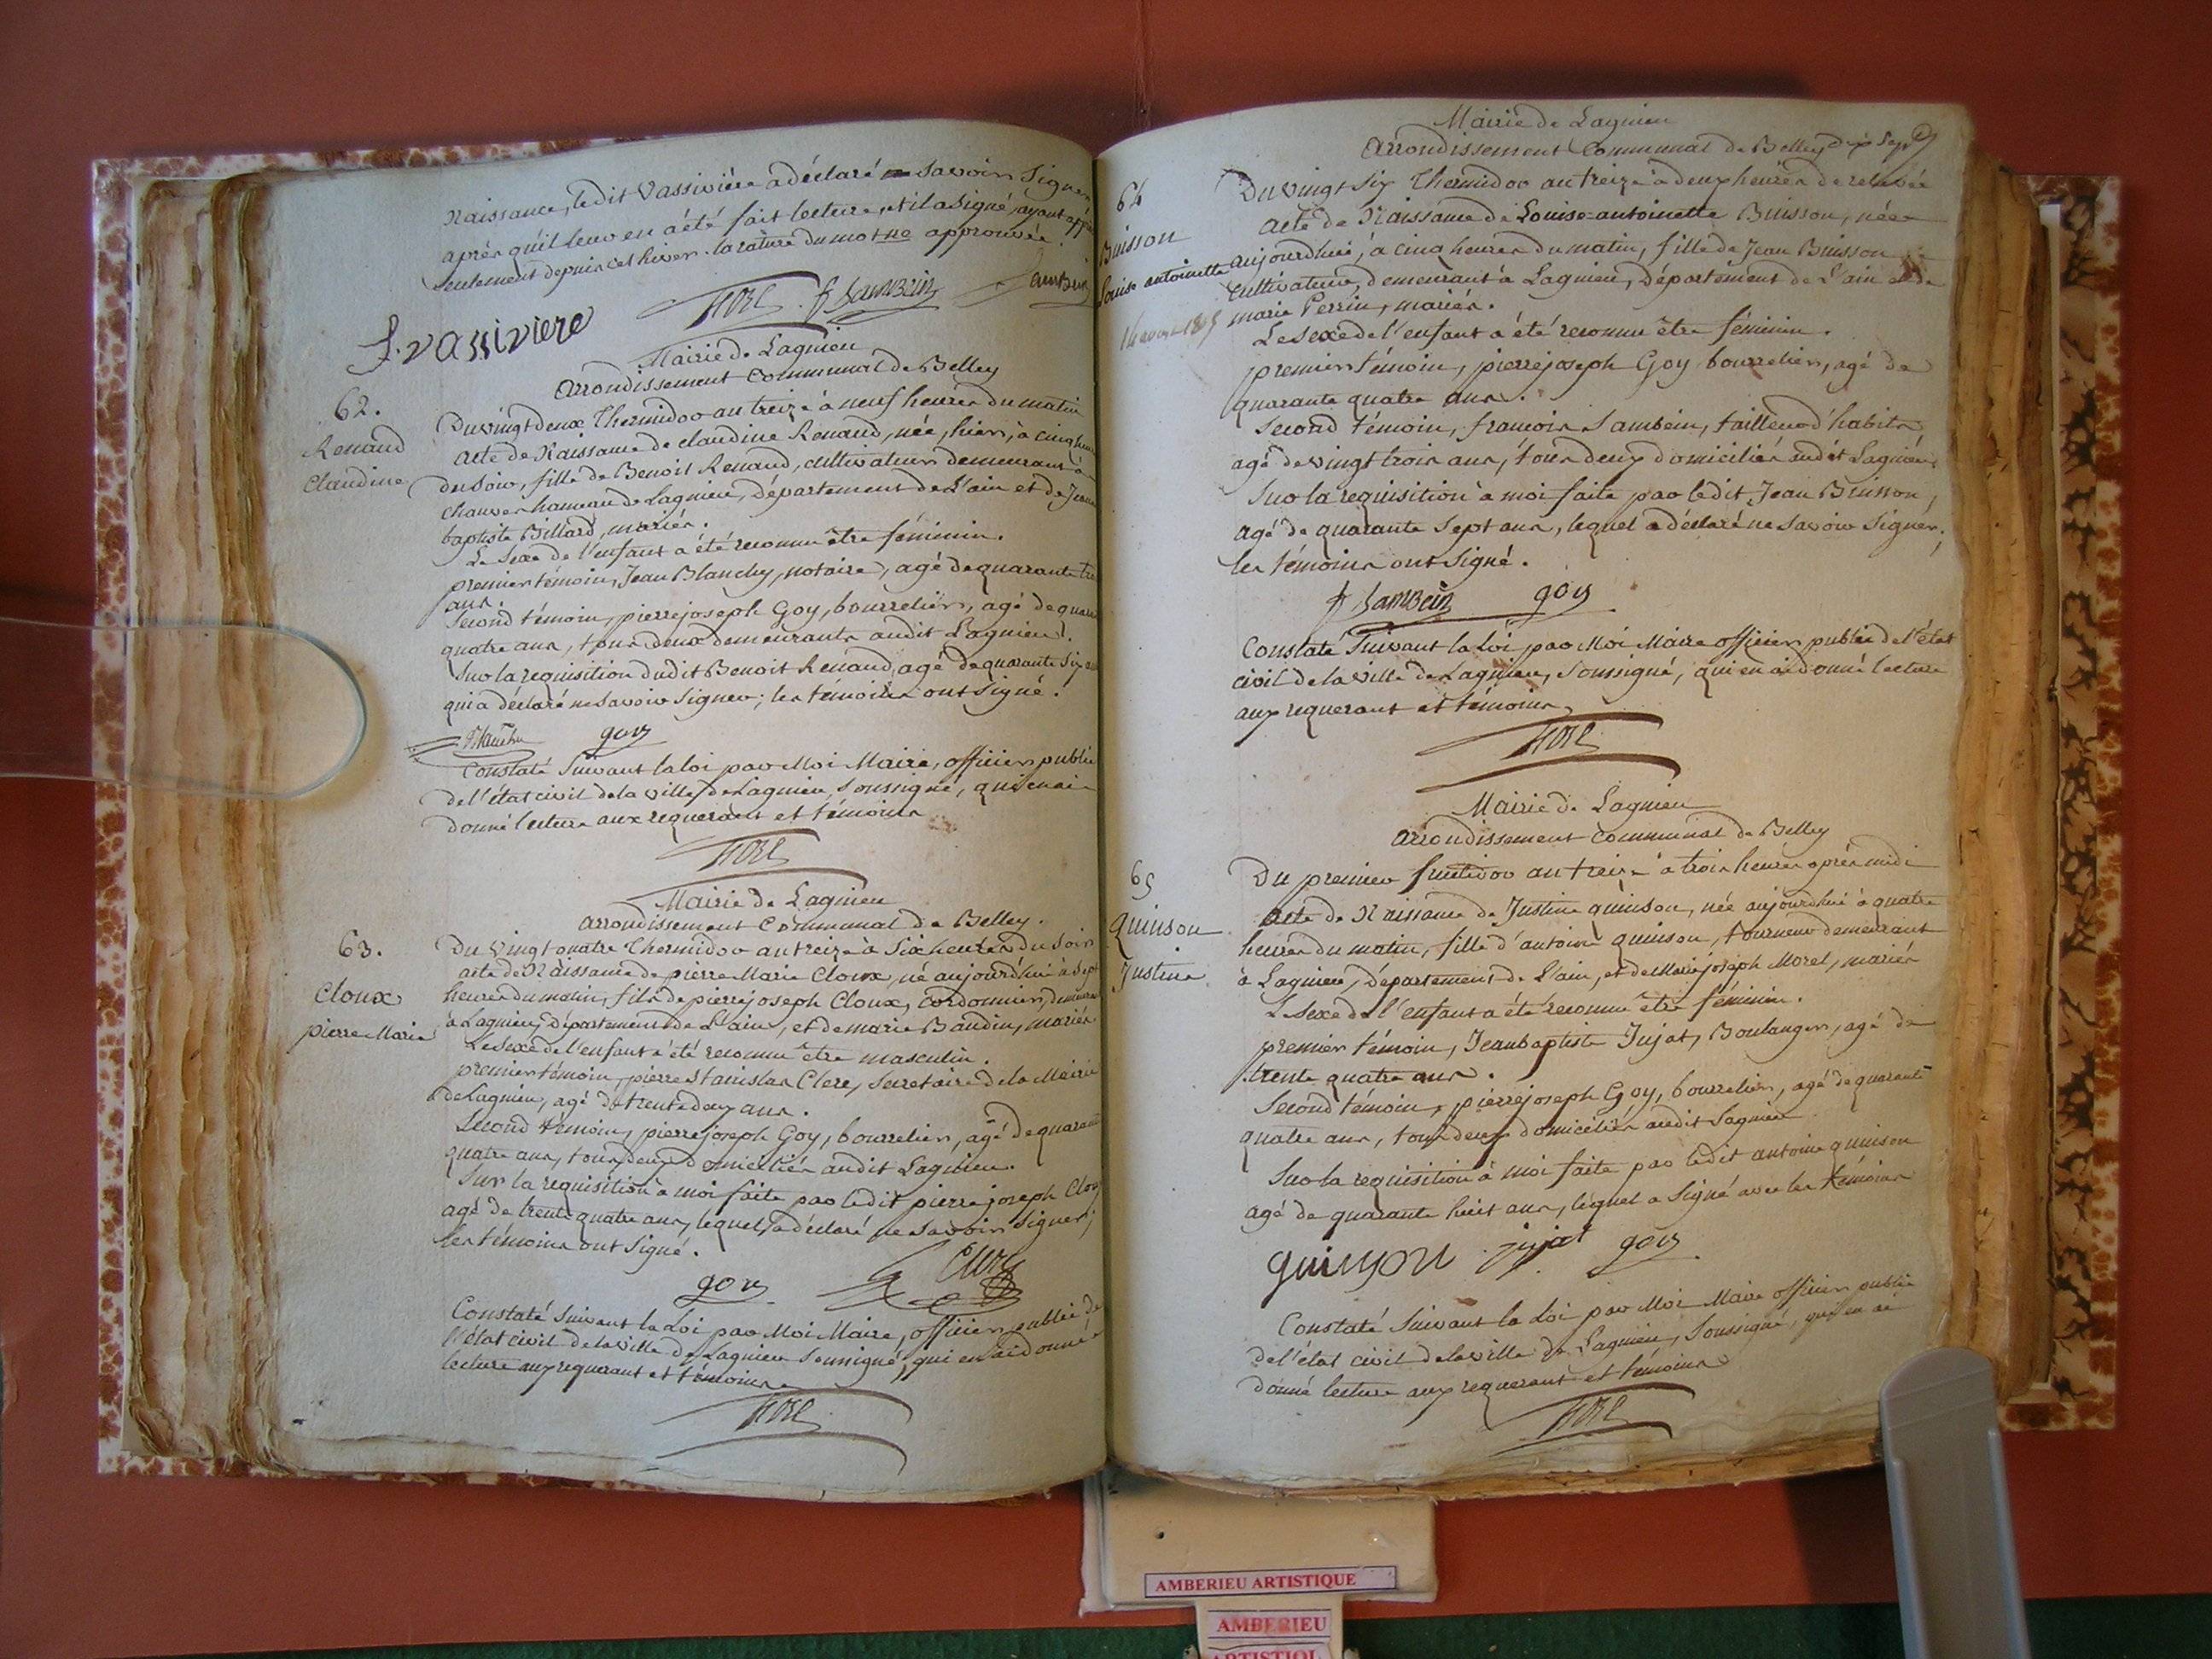 Naissance, ledit Vassiviere a déclaré ne savoir signer
après qu'il leur en a été fait lecture, et il a signé, ayant appris
seulement depuis cet hiver. la rature du mot ne approuvée.
f. Sambein
f. vassiviere
Mairie de Lagnieu
arrondissement Communal de Belley
62.
Renaud
Claudine
Du vingt deux Thermidor an treize à neuf heures du matin
acte de Naissance de claudine Renaud, née, hier, à cinq heures
du soir, fille de Benoit Renaud, cultivateur demeurant à
chauves hameau de Lagnieu, Département de L'ain et de Jeanne
baptiste Billard, mariés.
Le Sexe de l'enfant a été reconnu être féminin.
premier témoin, Jean Blanchy, notaire, agé de quarante trois
ans.
Second témoin, pierre joseph Goy, bourrelier, agé de quarante
quatre ans, tous deux demeurants audit Lagnieu.
Sur la requisition dudit Benoit Renaud, agé de quarante six ans
qui a déclaré ne savoir signer; les témoins ont signé.
goy
Constaté suivant la loi par Moi Maire, officier public
de l'état civil de la ville de Lagnieu, soussigné, qui en ai
donné lecture aux requerant et témoins
Mairie de Lagnieu
arrondissement Communal de Belley.
63.
Cloux
pierre Marie
Du Vingt quatre Thermidor an treize à Six heures du Soir
acte de Naissance de pierre Marie Cloux, né aujourd'hui à sept
heures du matin, fils de pierre joseph Cloux, Cordonnier, demeurant
à Lagnieu, Département de L'ain, et de marie Baudin, mariés
Le Sexe de l'enfant a été reconnu être masculin.
premier témoin, pierre Stanislas Clerc, Secretaire de la Mairie
de Lagnieu, agé de trente deux ans.
Second témoin, pierre joseph Goy, bourrelier, agé de quarante
quatre ans, tous deux domiciliés audit Lagnieu.
Sur la requisition à moi faite par ledit pierre joseph Cloux
agé de trente quatre ans, lequel a déclaré ne savoir signer;
les témoins ont signé.
goy Clerc
Constaté suivant la Loi par Moi Maire, officier public de
l'état civil de la ville de Lagnieu soussigné, qui en ai donné
lecture aux requerant et témoins.
Mairie de Lagnieu
arrondissement Communal de Belley
64
Buisson
Louise antoinette
14 aout 1805
Du vingt six Thermidor an treize à deux heures de relevée
acte de Naissance de Louise-antoinette Buisson, née
aujourd'hui, à cinq heures du matin, fille de Jean Buisson
cultivateur, demeurant à Lagnieu, Département de L'ain et de
marie Perrin, mariés.
Le sexe de l'enfant a été reconnu être féminin.
premier témoin, pierre joseph Goy bourrelier, agé de
quarante quatre ans.
Second témoin, francois Sambein, tailleur d'habits
agé de vingt trois ans, tous deux domiciliés audit Lagnieu.
Sur la requisition à moi faite par ledit Jean Buisson,
agé de quarante sept ans, lequel a déclaré ne savoir signer;
les témoins ont signé.
f Sambein goy
Constaté suivant la Loi par Moi Maire officier public de l'état
civil de la ville de Lagnieu, soussigné, qui en ai donné lecture
aux requerant et témoins.
Mairie de Lagnieu
arrondissement Communal de Belley
65
Quinson
Justine
Du premier fructidor an treize à trois heures après midi
acte de Naissance de Justine quinson, née aujourd'hui à quatre
heures du matin, fille d'antoine quinson, tourneur demeurant
à Lagnieu, Département de L'ain, et de Marie joseph Morel, mariés
Le Sexe de l'enfant a été reconnu être féminin.
premier témoin, Jean baptiste Jujat, Boulanger, agé de
trente quatre ans.
Second témoin, pierre joseph Goy, bourrelier, agé de quarante
quatre ans, tous deux domiciliés audit Lagnieu
Sur la requisition à moi faite par ledit antoine quinson
agé de quarante huit ans, lequel a signé avec les témoins
quinson jujat goy
Constaté suivant la Loi par Moi Maire officier public
de l'état civil de la ville de Lagnieu, soussigné, qui en ai
donné lecture aux requerant et témoins
AMBERIEU ARTISTIQUE
AMBERIEU